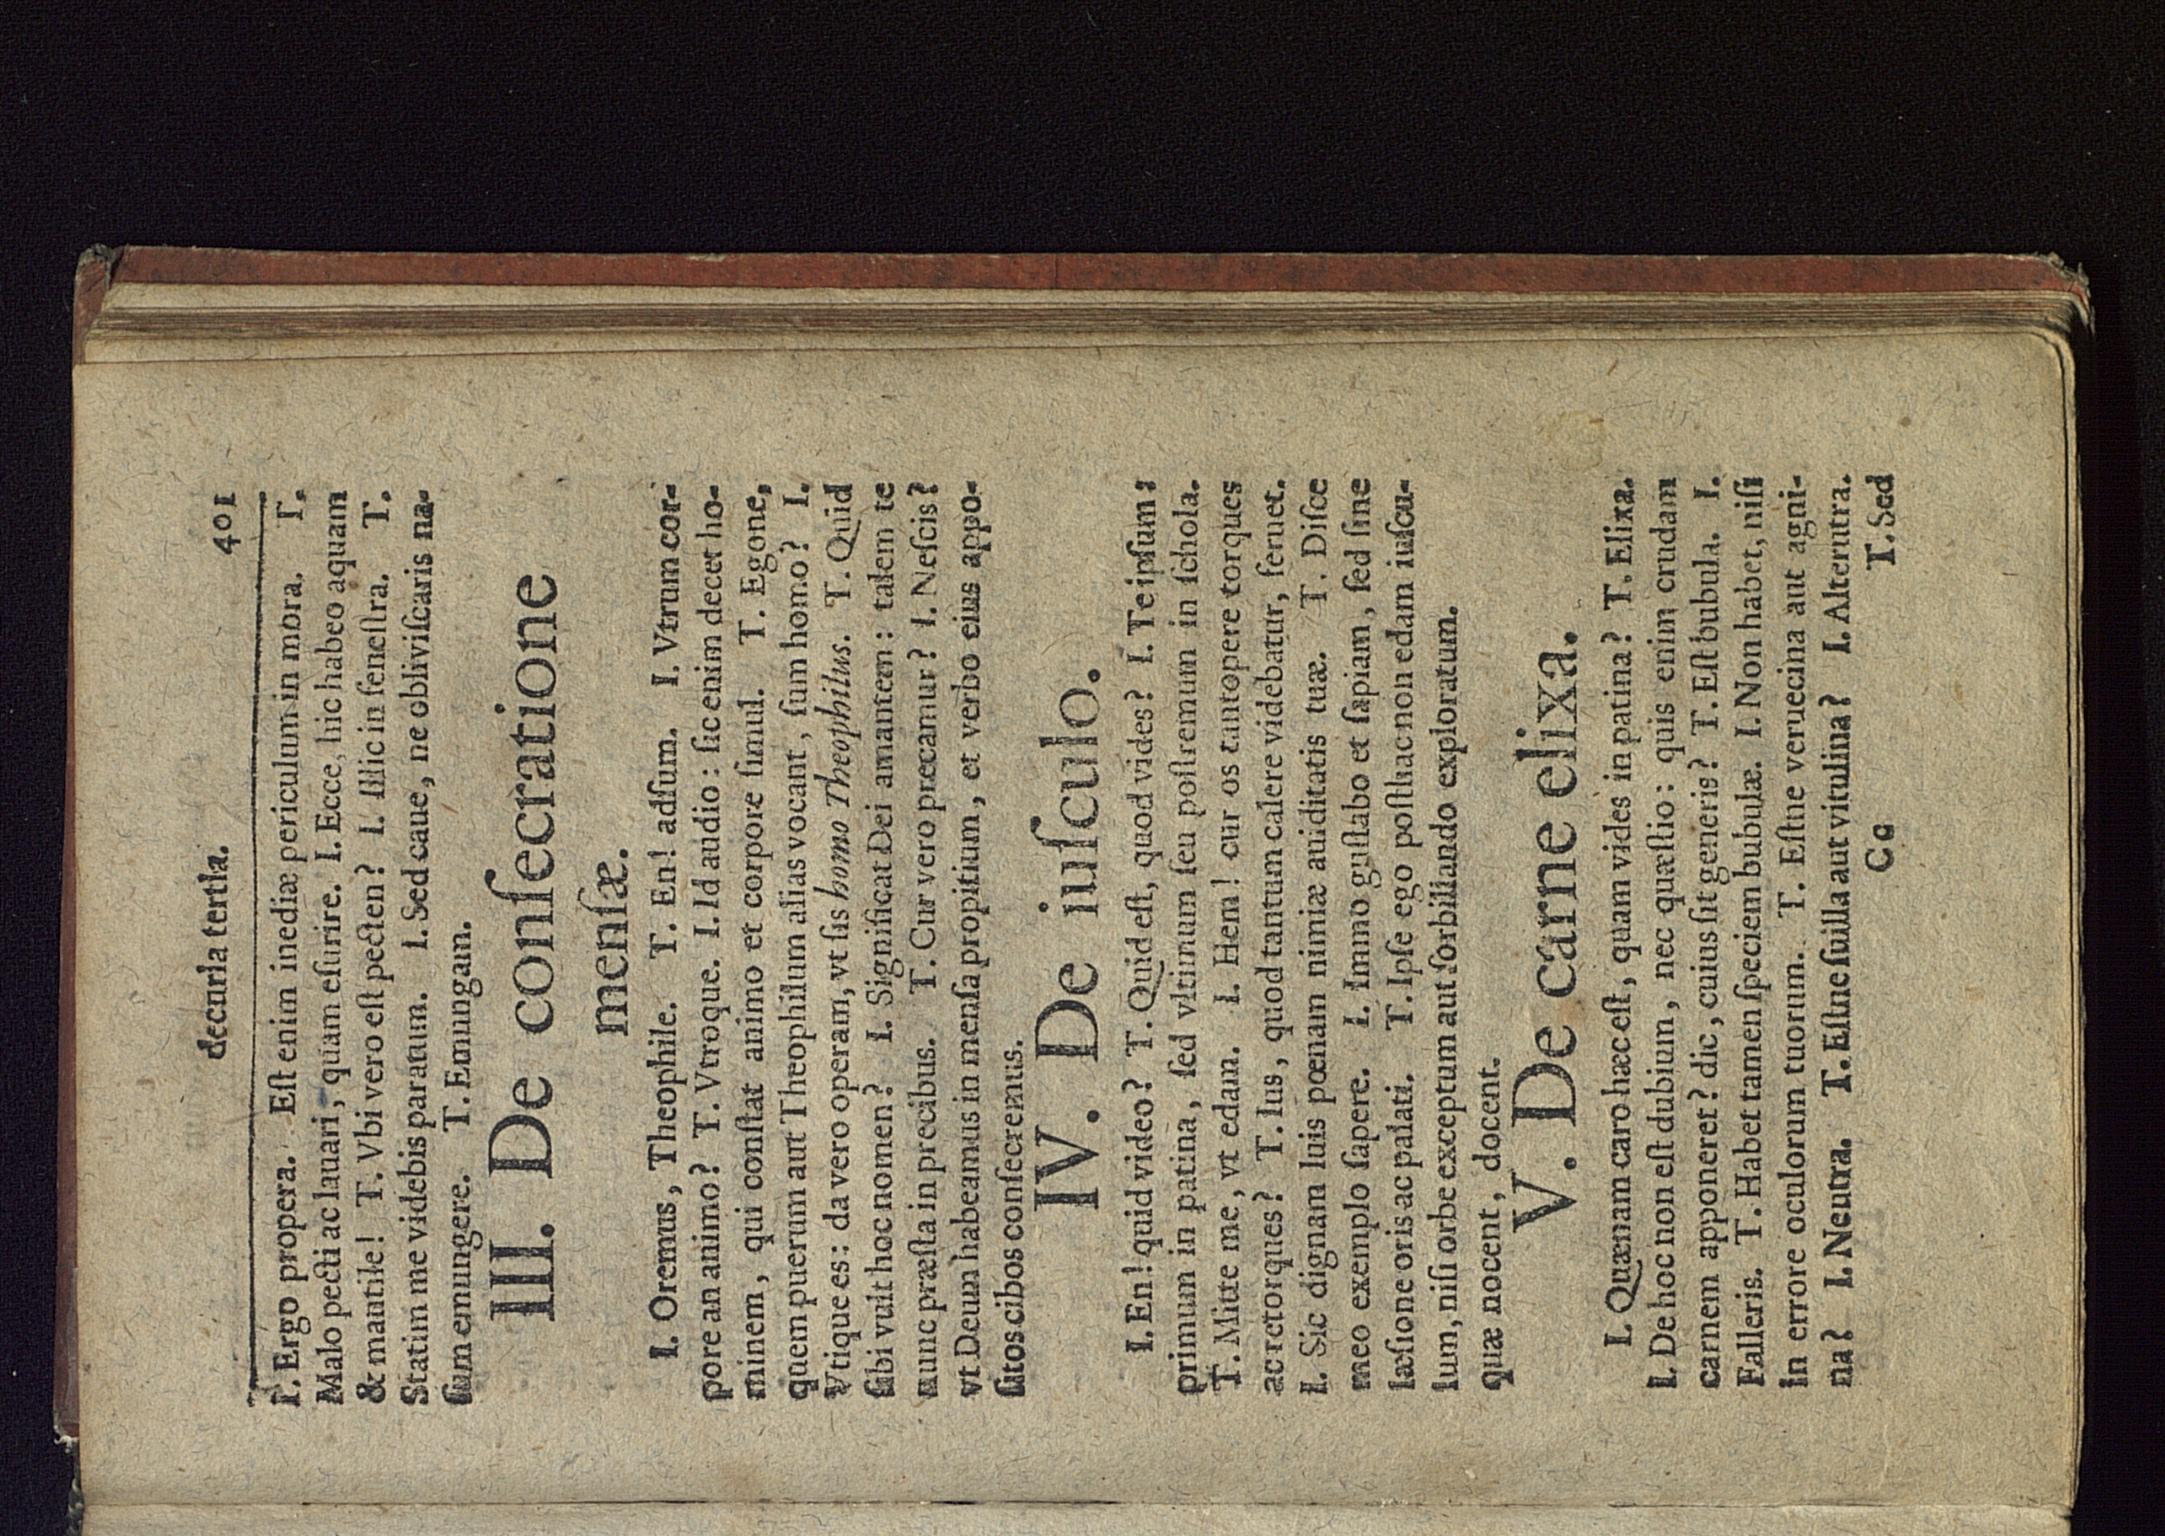 decuria tertia. 401
I. Ergo propera. Eſt enim inediæ periculum in mora. T.
Malo pecti ac lauari, quam eſurire. I. Ecce, hic habeo aquam
& mantile! T. Vbi vero eſt pecten? I. Illic in feneſtra. T.
Statim me videbis paratum. I. Sed caue, ne obliviſcaris na-
ſum emungere. T. Emungam.
III. De conſecratione
menſæ.
I. Oremus, Theophile. T. En! adſum. I. Vtrum cor-
pore an animo? T. Vtroque. I. Id audio: ſic enim decet ho-
minem, qui conſtat animo et corpore ſimul. T. Egone,
quem puerum aut Theophilum alias vocant, ſum homo? I.
Vtique es: da vero operam, vt ſis homo Theophilus. T. Quid
ſibi vult hoc nomen? I. Significat Dei amantem: talem te
nunc præſta in precibus. T. Cur vero precamur? I. Neſcis?
vt Deum habeamus in menſa propitium, et verbo eius appo-
ſitos cibos conſecremus.
IV. De iuſculo.
I. En! quid video? T. Quid eſt, quod vides? I. Te ipſum:
primum in patina, ſed vltimum ſeu poſtremum in ſchola.
T. Mitte me, vt edam. I. Hem! cur os tantopere torques
ac retorques? T. Ius, quod tantum calere videbatur, feruet.
I. Sic dignam luis pœnam nimiæ auiditatis tuæ. T. Diſce
meo exemplo ſapere. I. Immo guſtabo et ſapiam, ſed ſine
læſione oris ac palati. T. Ipſe ego poſthac non edam iuſcu-
lum, niſi orbe exceptum aut ſorbillando exploratum.
quæ nocent, docent.
V. De carne elixa.
I. Quænam caro hæc eſt, quam vides in patina? T. Elixa.
I. De hoc non eſt dubium, nec quæſtio: quis enim crudam
carnem apponeret? dic, cuius ſit generis? T. Eſt bubula. I.
Falleris. T. Habet tamen ſpeciem bubulæ. I. Non habet, niſi
in errore oculorum tuorum. T. Eſtne veruecina aut agni-
na? I. Neutra. T. Eſtne ſuilla aut vitulina? I. Alterutra.
Cc T. Sed